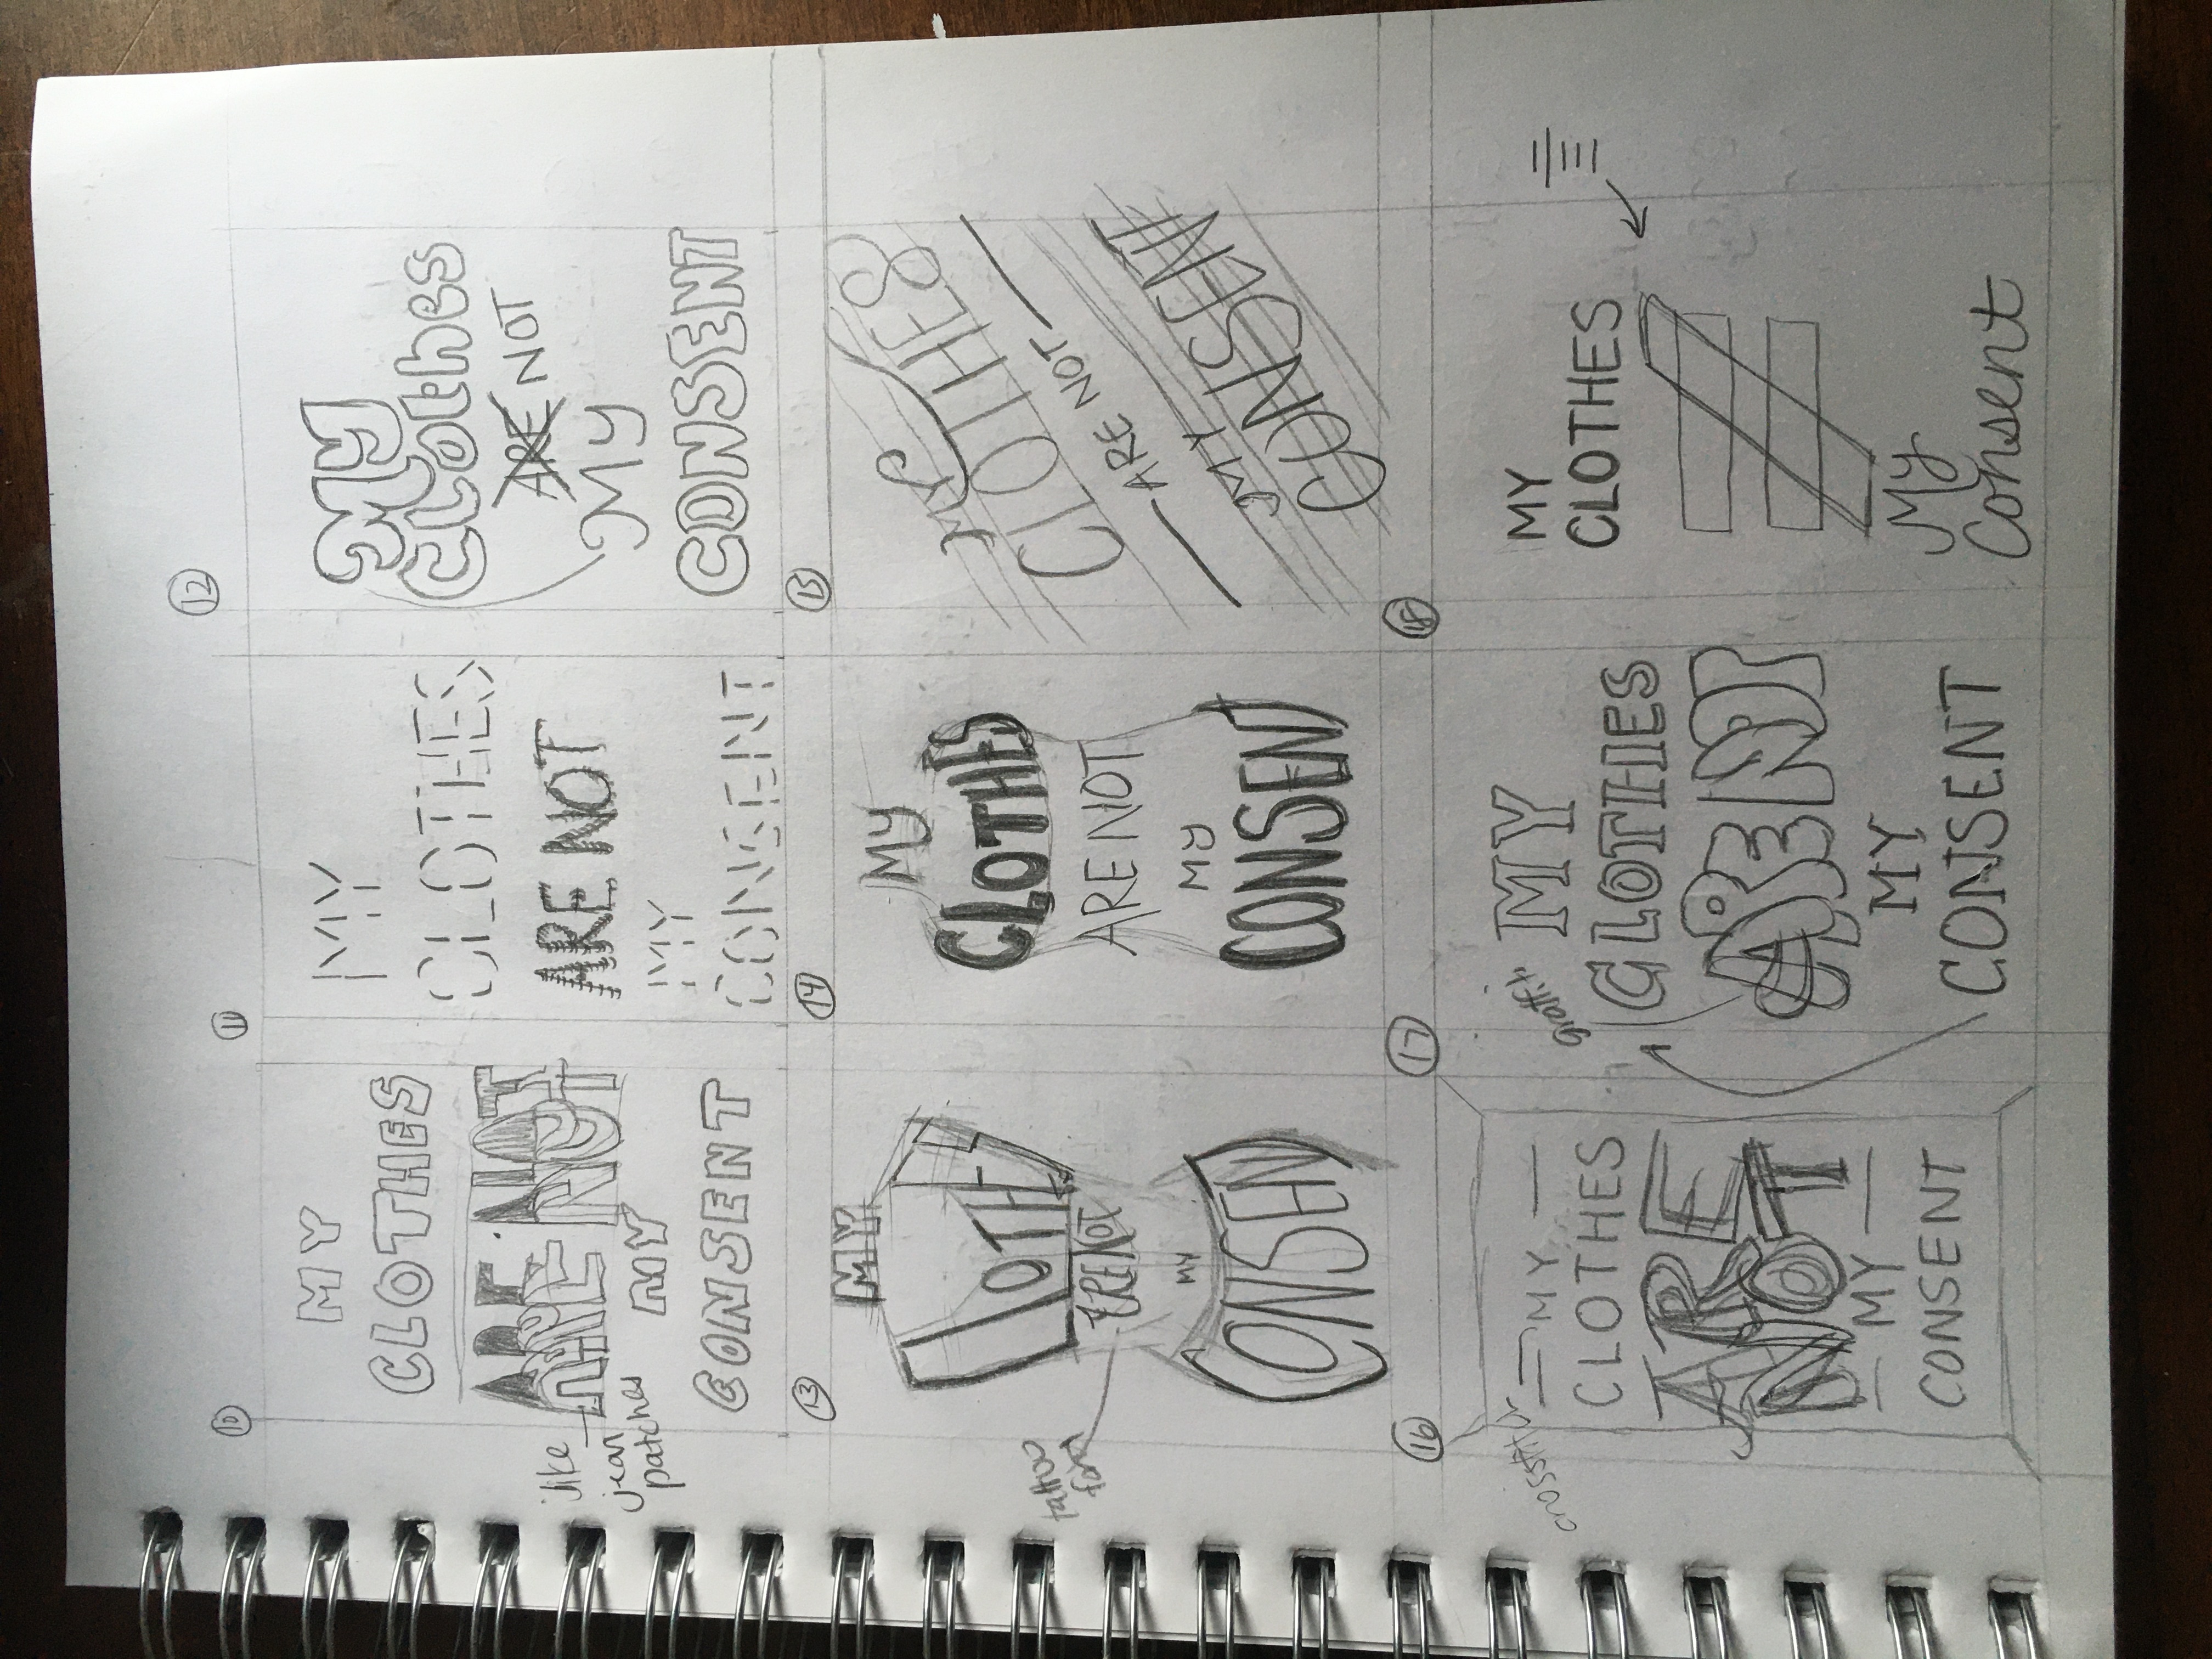 10
MY
CLOTHES
ARE NOT
ARE NOT
MY
CONSENT
like
jean
patches
11
MY
CLOTHES
ARE NOT
MY
CONSENT
12
My
Clothes
ARE NOT
My
CONSENT
13
MY
CLOTHES
ARE NOT
MY
CONSENT
tattoo
14
MY
CLOTHES
ARE NOT
MY
CONSENT
15
MY
CLOTHES
ARE NOT
MY
CONSENT
16
MY
CLOTHES
ARE
NOT
MY
CONSENT
17
graffiti
MY
CLOTHES
MY
CONSENT
18
MY
CLOTHES
My
Consent